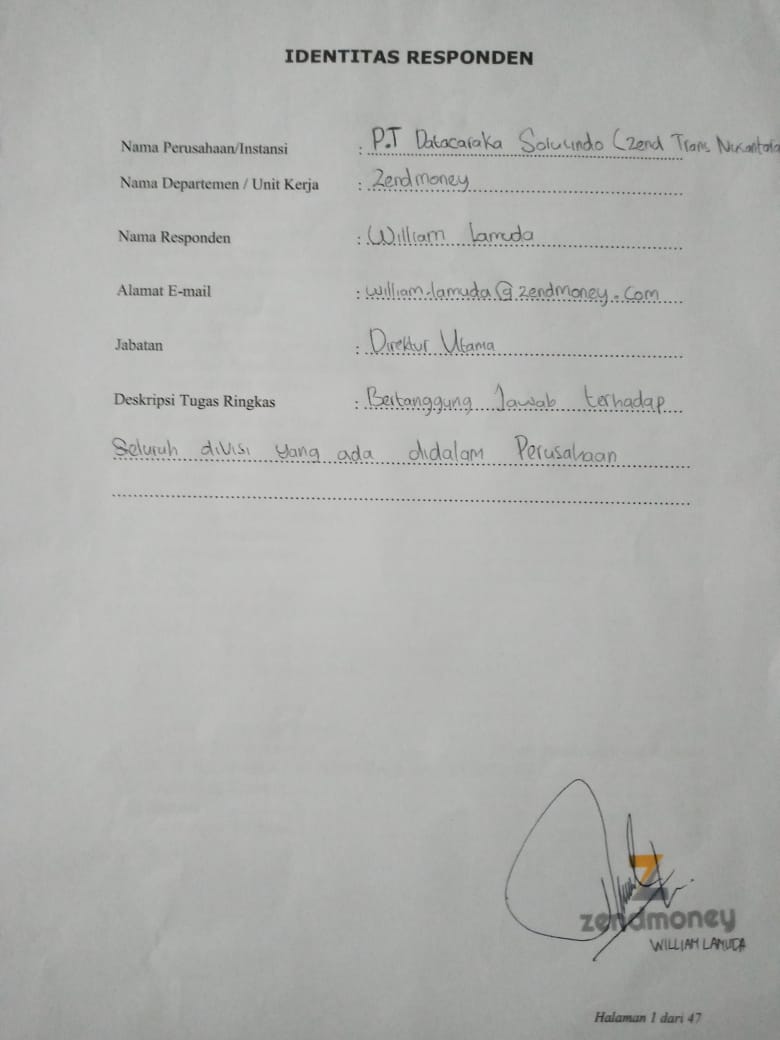 IDENTITAS RESPONDEN
Nama Perusahaan/Instansi : P.T Datacaraka Solusindo (Zend Trans Nusantara
Nama Departemen / Unit Kerja : Zendmoney
Nama Responden : William Lamuda
Alamat E-mail : william.lamuda@zendmoney.com
Jabatan : Direktur Utama
Deskripsi Tugas Ringkas : Bertanggung Jawab terhadap
Seluruh divisi yang ada didalam Perusahaan
zendmoney
WILLIAM LAMUDA
Halaman 1 dari 47